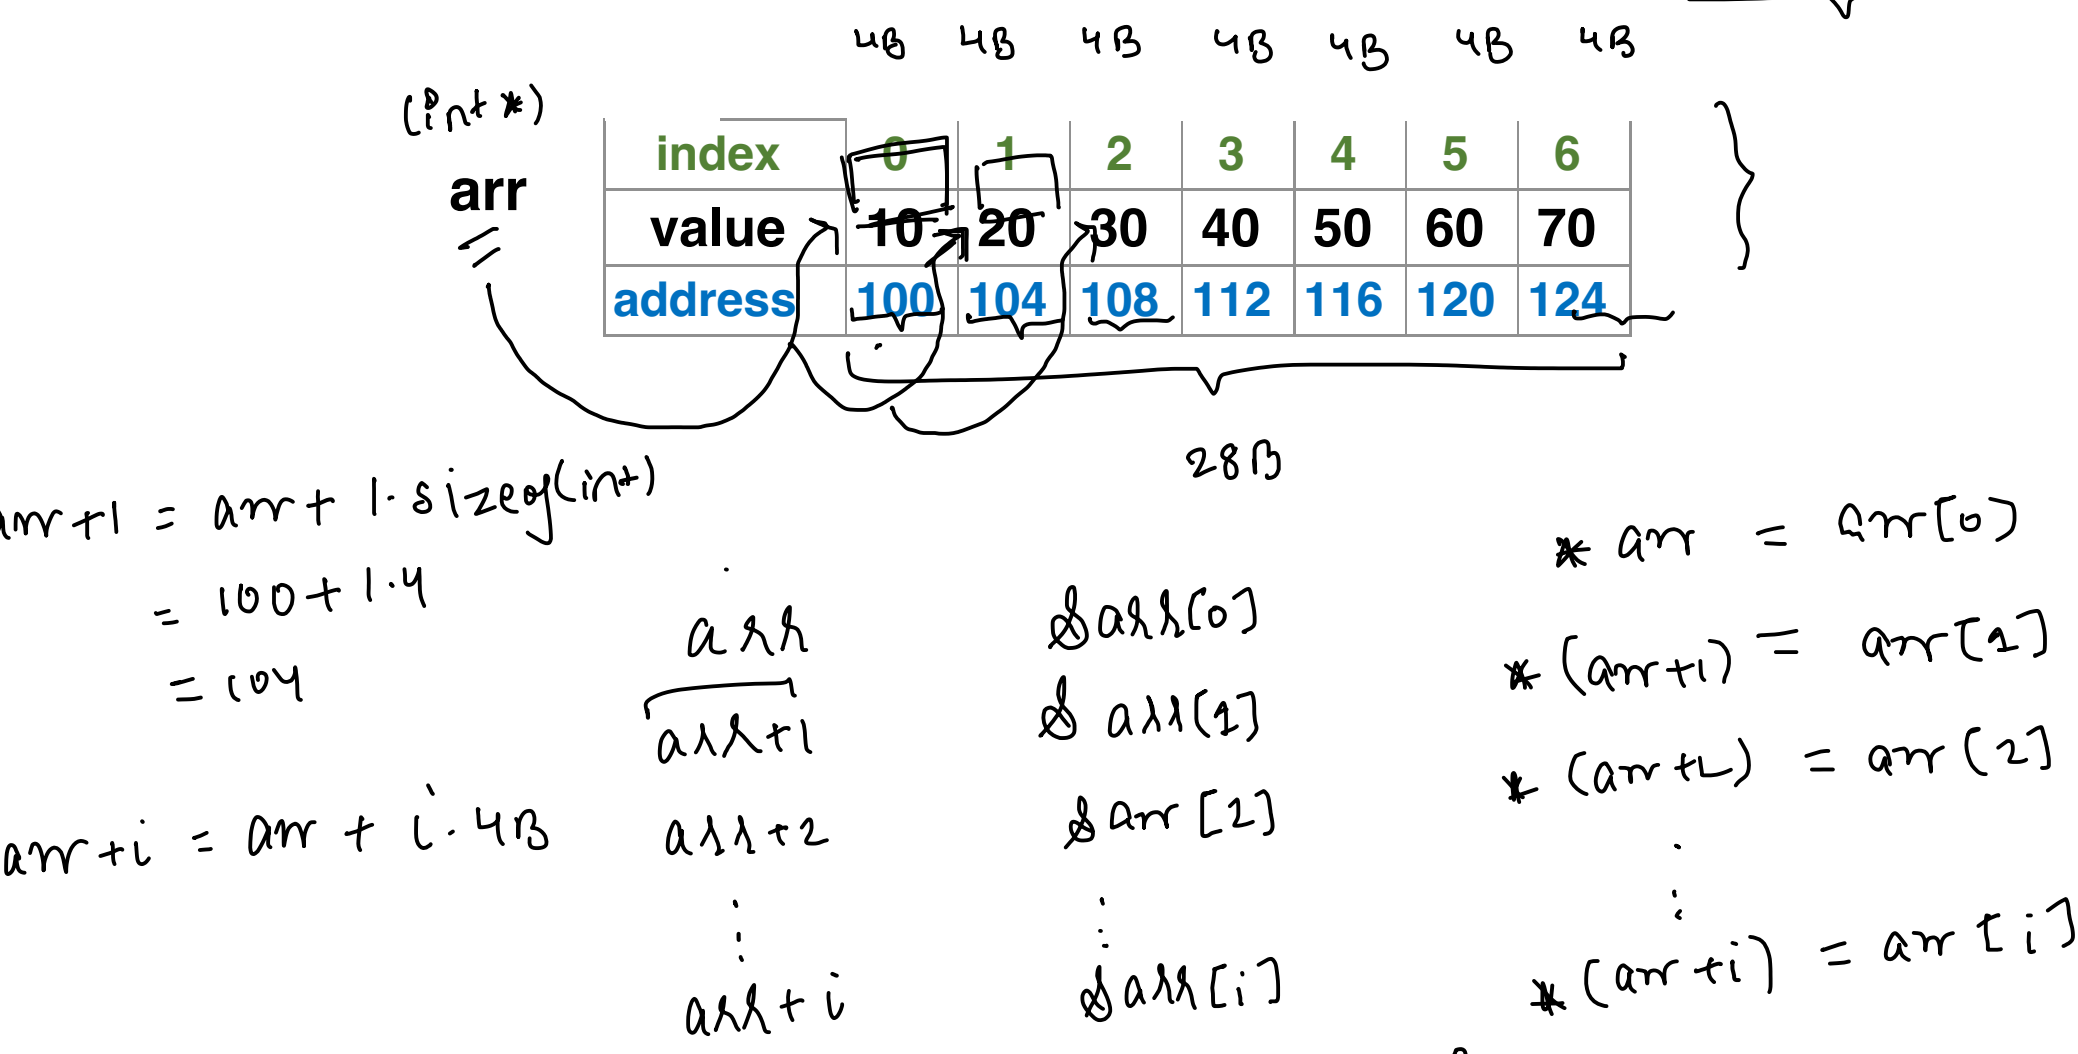 4B 4B 4B 4B 4B 4B 4B
(int *)
arr
index 0 1 2 3 4 5 6
value 10 20 30 40 50 60 70
address 100 104 108 112 116 120 124
28B
arr+1 = arr + 1.sizeof(int)
= 100 + 1.4
= 104
arr+i = arr + i.4B
arr &arr[0]
arr+1 &arr[1]
arr+2 &arr[2]
arr+i &arr[i]
* arr = arr[0]
* (arr+1) = arr[1]
* (arr+2) = arr[2]
* (arr+i) = arr[i]